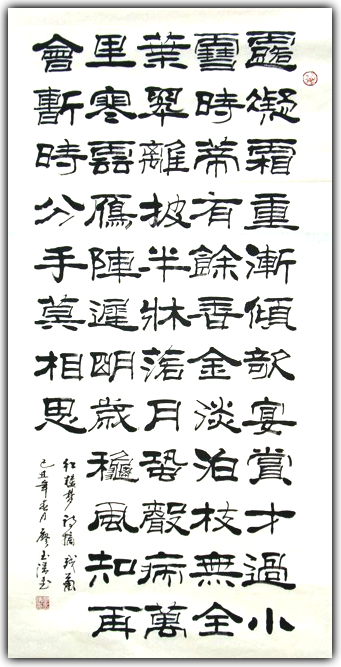 露凝霜重漸傾欹宴賞才過小
雪時蒂有餘香金淡泊枝無全
葉翠離披半牀落月蛩聲病萬
里寒雲鴈陣遲明歲龝風知再
會暫時分手莫相思
红楼梦诗摘 残菊
己丑年春月廖玉